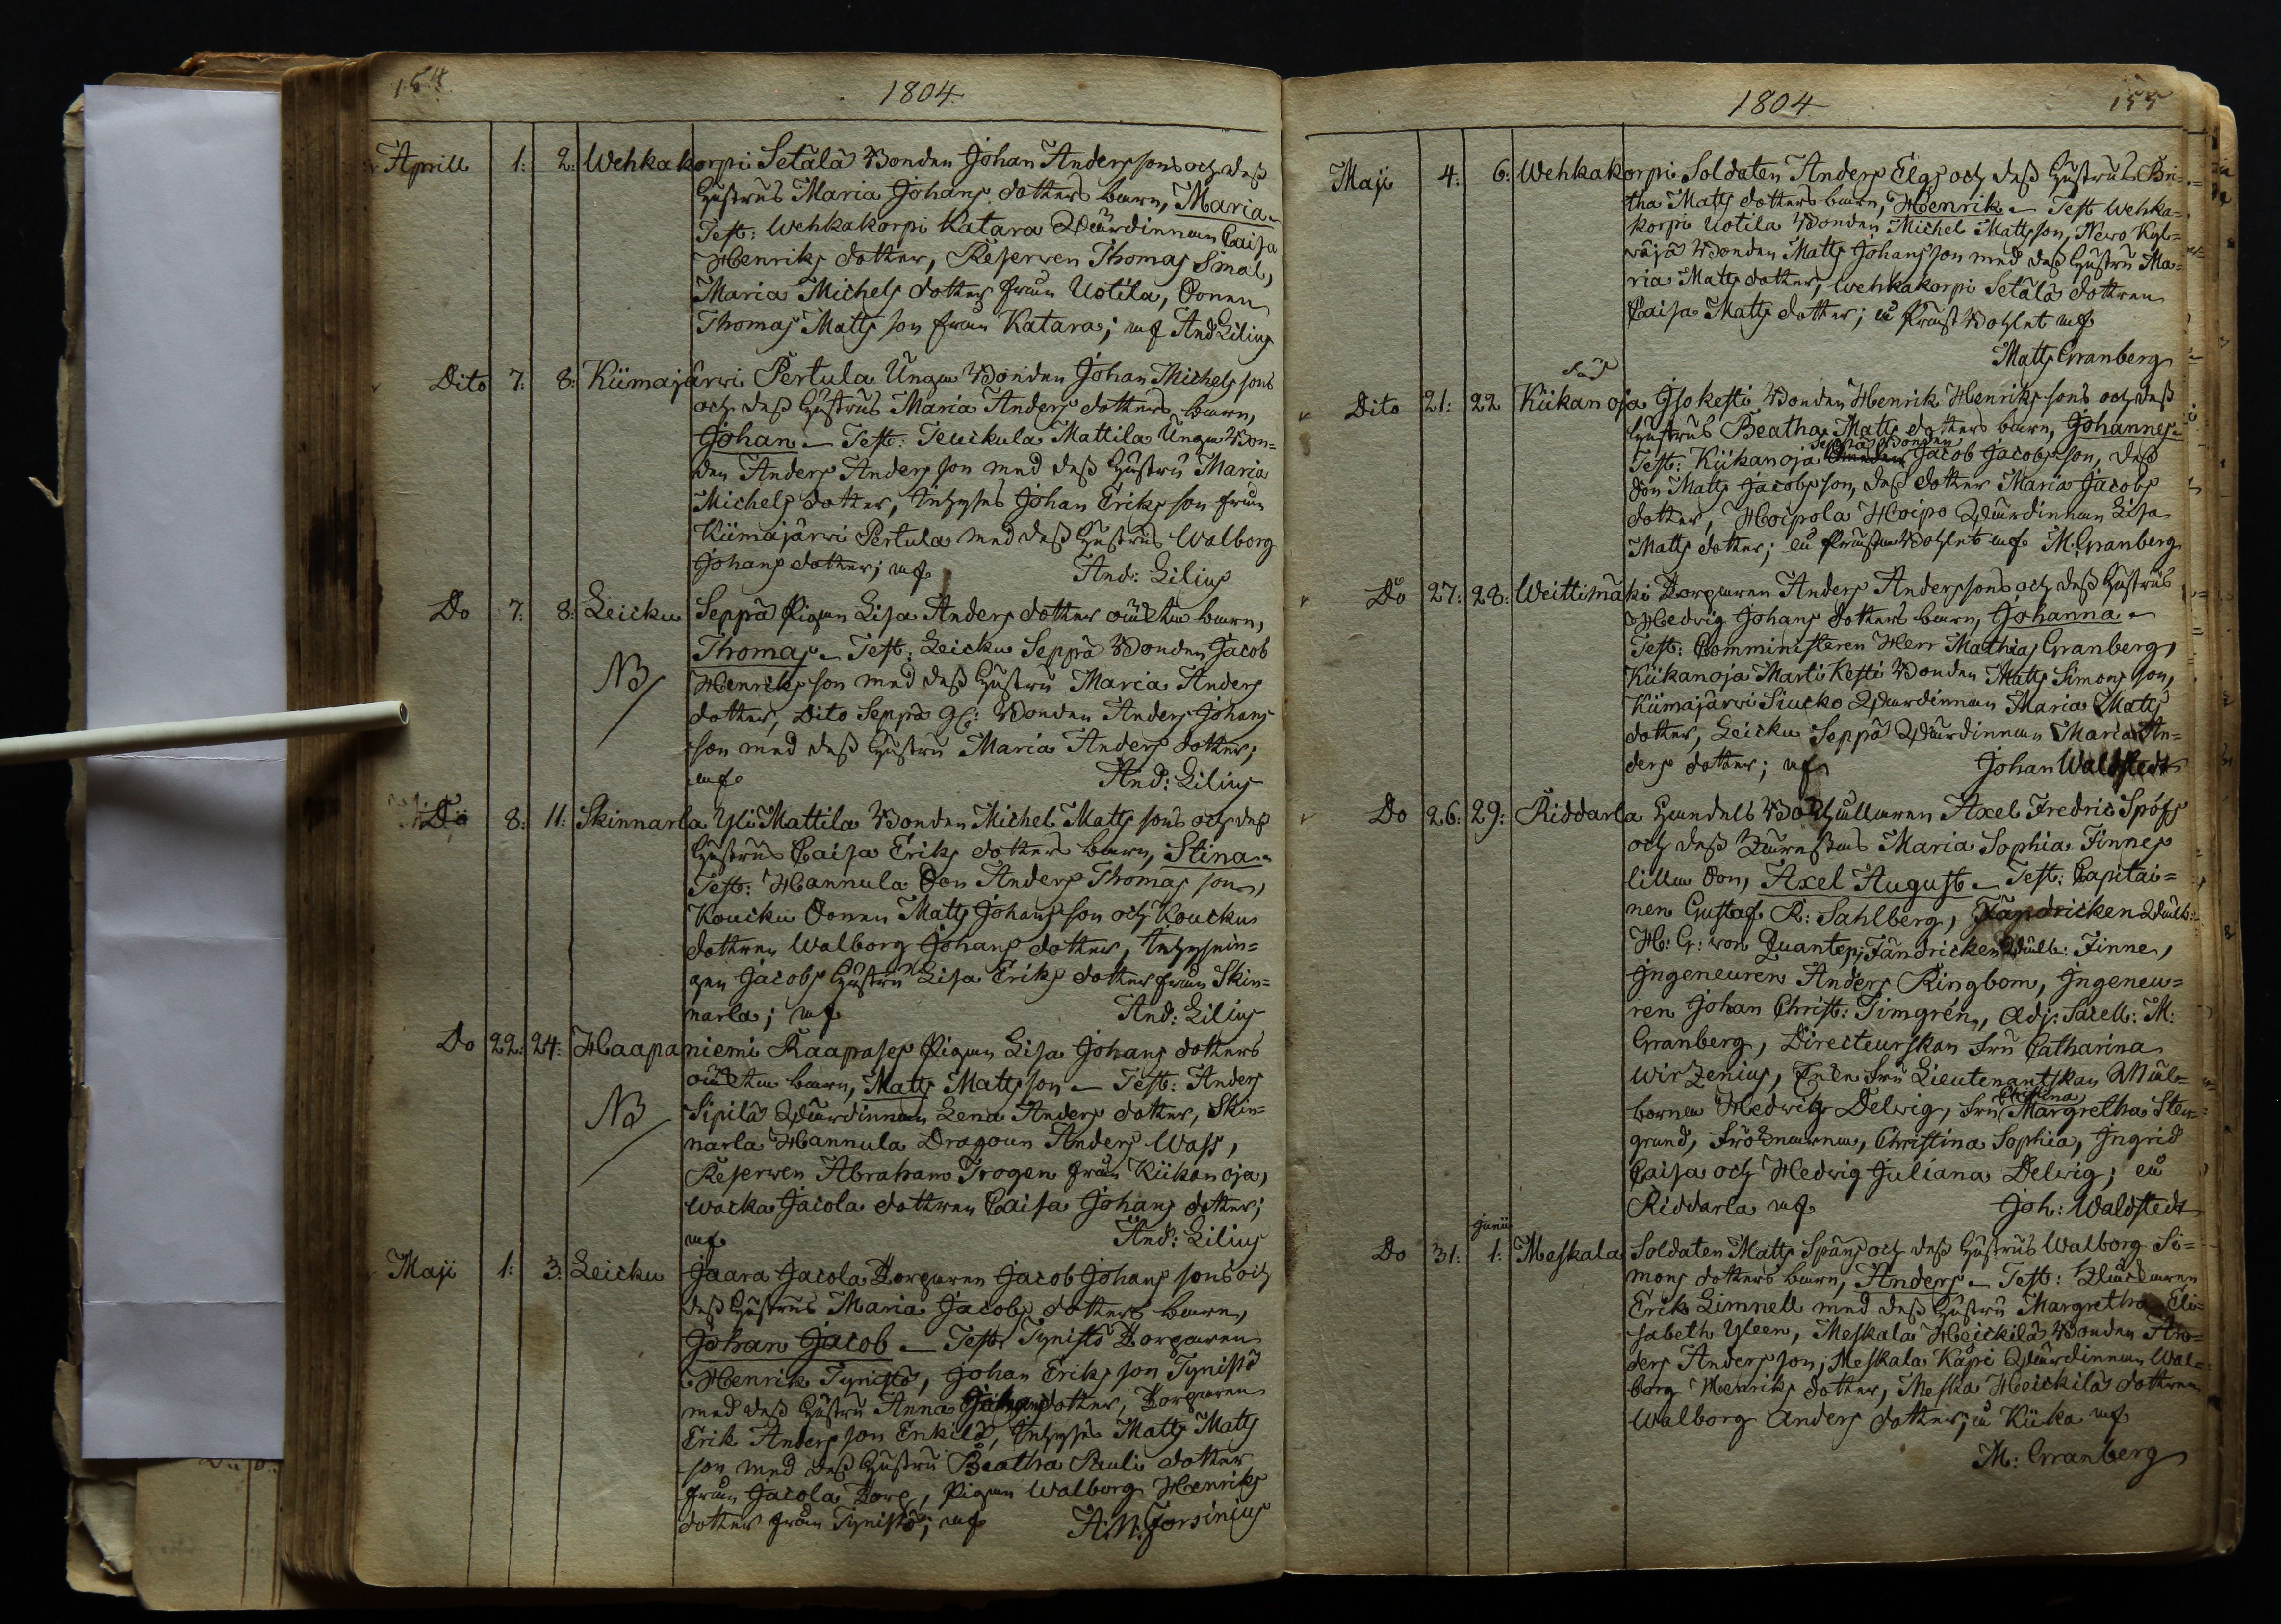 154.
1804.
Aprill 1: 2: Wehkakorpi Setälä Bonden Johan Anders sons och dess
Hustrus Maria Johans dotters barn, Maria –
Test: Wehkakorpi Katara Wärdinnan Caisa
Henriks dotter, Reserven Thomas Smal,
Maria Michels dotter från Uotila, Sonen
Thomas Matts son från Katara; mf And Lilius
Dito 7: 8: Kiimajärvi Pertula Unga Bonden Johan Michels sons
och dess Hustrus Maria Anders dotters barn,
Johan – Test: Teuckula Mattila Unga Bon=
den Anders Anders son med dess Hustru Maria
Michels dotter, Inhyses Johan Eriks son från
Kiimajärvi Pertula med dess Hustru Walborg
Johans dotter; mf. And: Lilius
Do 7: 8: Leicku Seppä Pigan Lisa Anders dotter oächta barn,
Thomas – Test: Leicku Seppä Bonden Jacob
NB Henriks son med dess Hustru Maria Anders
dotter, Dito Seppä Bonden Anders Johans
son med dess Hustru Maria Anders dotter;
mf. And: Lilius
Do 8: 11: Skinnarla Yli Mattila Bonden Michel Matts sons och dess
Hustrus Caisa Eriks dotters barn, Stina –
Test: Hannula Son Anders Thomas son,
Koucku Sonen Matts Johans son och Koucku
dottren Walborg Johans dotter, Inhysin=
gen Jacobs Hustru Lisa Eriks dotter från Skin=
narla; mf And: Lilius
Do 22: 24: Haapaniemi Raapases Pigan Lisa Johans dotters
oächta barn, Matts Matts son – Test: Anders
NB Sipilä Wärdinnan Lena Anders dotter, Skin=
narla Hannula Dragoun Anders Wass,
Reserven Abraham Trogen från Kiikanoja,
Wacka Jacola dottren Caisa Johans dotter;
mf. And: Lilius
Maji 1: 3: Leicku Jaara Jacola Torparen Jacob Johans sons och
dess Hustrus Maria Jacobs dotters barn,
Johan Jacob – Test: Tynistö Torparen
Henrik Tynistö, Johan Eriks son Tynistö
med dess Hustru Anna Johans dotter, Torparen
Erik Anders son Erkilä, Inhyses Matts Matts
son med dess Hustru Beatha Pauli dotter
från Jacola Torp, Pigan Walborg Henriks
dotter från Tynistö; mf A:N: Forsinius
1804
155
Maji 4: 6: Wehkakorpi Soldaten Anders Elgs och dess Hustrus Bri=
tha Matts dotters barn, Henrik – Test Wehka=
korpi Uotila Bonden Michel Matts son, Newo Kyl=
väjä Bonden Matts Johans son med dess Hustru Ma=
ria Matts dotter, Wehkakorpi Setälä dottren
Caisa Matts dotter; å Prast Bohlet mf
Matts Granberg
Dito 21: 22 Kiikanoja Isokesti Bonden Henrik Henriks sons och dess
Hustrus Beatha Matts dotters barn, Johannes –
Seppä Bonden
Test: Kiikanoja Jacob Jacobs son, dess
Son Matts Jacobs son, dess dotter Maria Jacobs
dotter, Hoipola Hoipo Wärdinnan Lisa
Matts dotter; å Prast Bohlet mf. M: Granberg
Do 27: 28: Weittimäki Torparen Anders Anders sons och dess Hustrus
Hedvig Johans dotters barn, Johanna –
Test: Comministeren Herr Mathias Granberg,
Kiikanoja Marti Kesti Bonden Matts Simons son,
Kiimajärvi Siucko Wärdinnan Maria Matts
dotter, Leicku Seppä Wärdinnan Maria An=
ders dotter; mf. Johan Waldstedt
Do 26: 29: Riddarla Handels Bokhållaren Axel Fredric Spöfs
och dess Maria Sophia Finnes
lilla Son, Axel August – Test: Capitai=
nen Gustaf R: Sahlberg, Fändricken Wälb:
H: G: von Quanten, Fändricken Wälb: Finne,
Ingeneuren Anders Ringbom, Ingeneu=
ren Johan Christ: Timgrén, Adj: Sacell: M:
Granberg, Directeurskan Fru Catharina
Wirzenius, Fru Lieutenantskan Wäl=
Christina
borna Hedwig Delvig, Fru Margretha Sten=
grund, Fröknarna, Christina Sophia, Ingrid
Caisa och Hedwig Juliana Delvig; å
Riddarla mf. Joh: Waldstedt
Junii
Do 31: 1: Meskala Soldaten Matts Späns och dess Hustrus Walborg Si=
mons dotters barn, Anders – Test:
Erik Limnell med dess Hustru Margretha Eli=
sabeth Yleen, Meskala Heickilä Bonden An=
ders Anders son, Meskala Käpi Wärdinnan Wal=
borg Henriks dotter, Meska Heickilä dottren
Walborg Anders dotter; å Kiika mf
M: Granberg